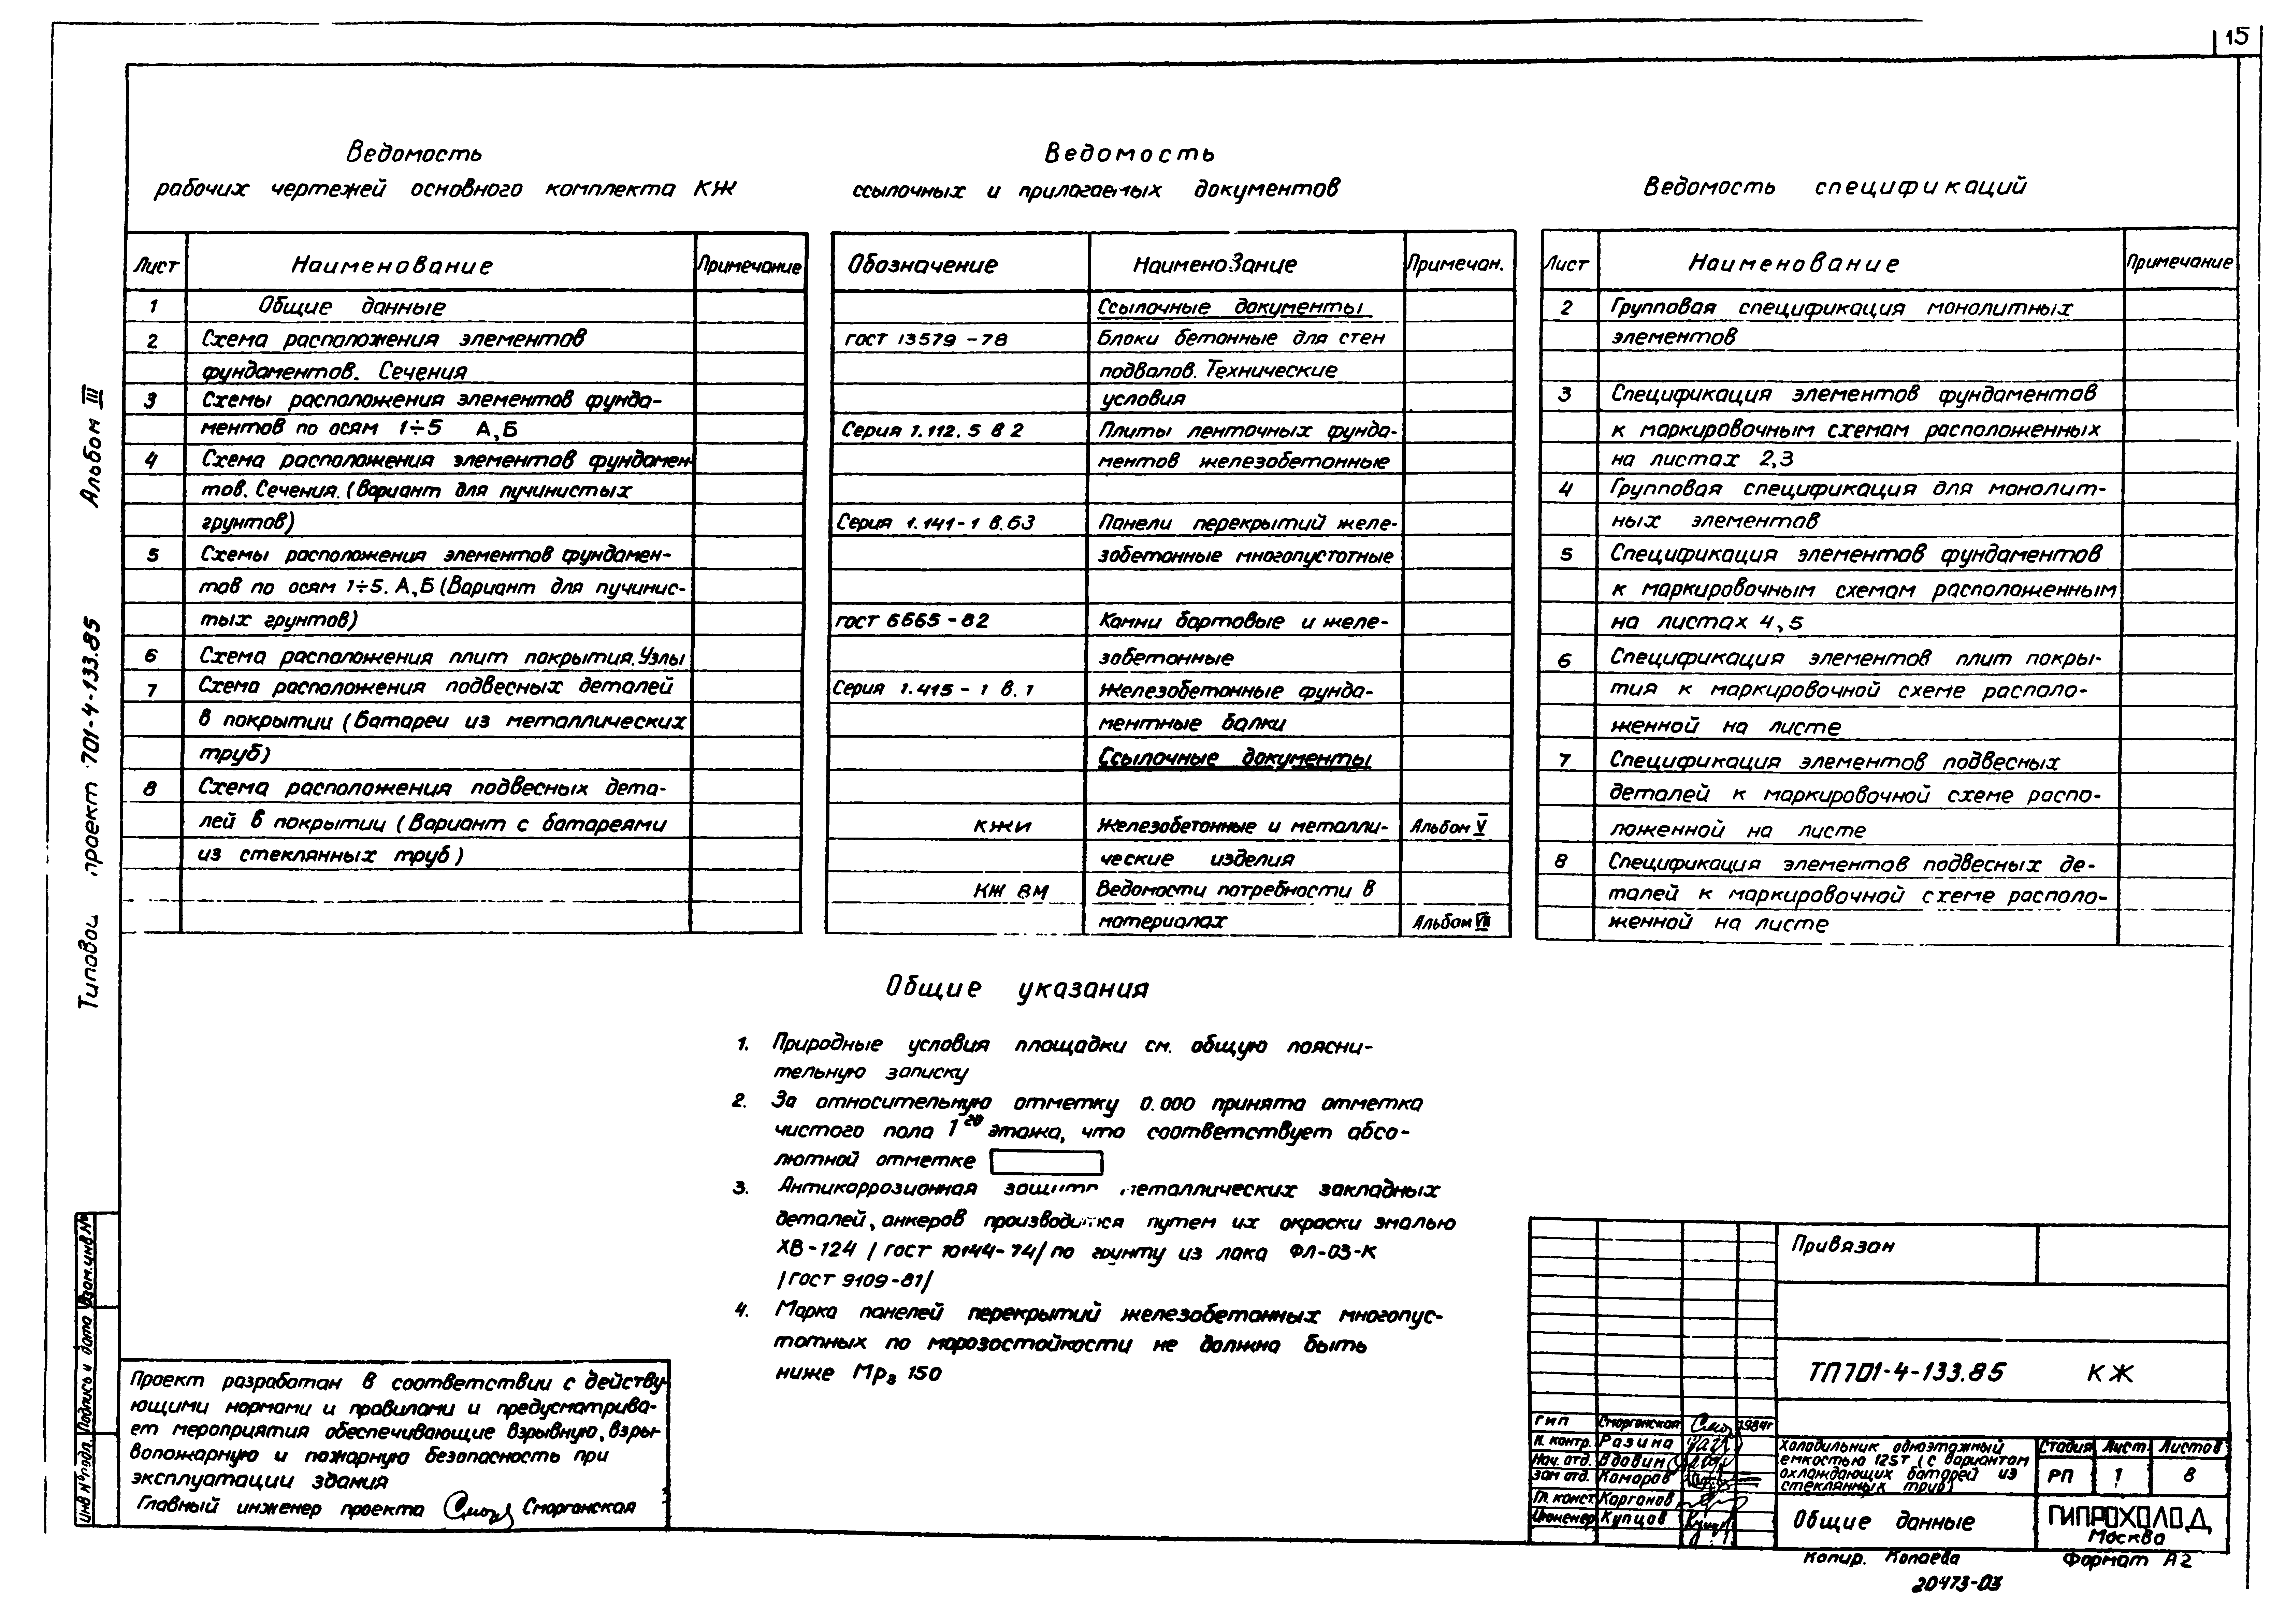 15
Альбом III
Типовой проект 701-4-133.85
Ведомость
рабочих чертежей основного комплекта КЖ
Лист Наименование Примечание
1 Общие данные
2 Схема расположения элементов
фундаментов. Сечения
3 Схемы расположения элементов фунда-
ментов по осям 1÷5 А,Б
4 Схема расположения элементов фундамен-
тов. Сечения. (Вариант для пучинистых
грунтов)
5 Схемы расположения элементов фундамен-
тов по осям 1÷5. А,Б (Вариант для пучинис-
тых грунтов)
6 Схема расположения плит покрытия. Узлы
7 Схема расположения подвесных деталей
в покрытии (Батареи из металлических
труб)
8 Схема расположения подвесных дета-
лей в покрытии (Вариант с батареями
из стеклянных труб)
Ведомость
ссылочных и прилагаемых документов
Обозначение Наименование Примечан.
Ссылочные документы
ГОСТ 13579-78 Блоки бетонные для стен
подвалов. Технические
условия
Серия 1.112.5 в 2 Плиты ленточных фунда-
ментов железобетонные
Серия 1.141-1 в.63 Панели перекрытий желе-
зобетонные многопустотные
ГОСТ 6665-82 Камни бортовые и желе-
зобетонные
Серия 1.415-1 в.1 Железобетонные фунда-
ментные балки
Ссылочные документы
КЖИ Железобетонные и металли- Альбом V
ческие изделия
КЖ ВМ Ведомости потребности в
материалах Альбом VII
Ведомость спецификаций
Лист Наименование Примечание
2 Групповая спецификация монолитных
элементов
3 Спецификация элементов фундаментов
к маркировочным схемам расположенных
на листах 2,3
4 Групповая спецификация для монолит-
ных элементов
5 Спецификация элементов фундаментов
к маркировочным схемам расположенным
на листах 4,5
6 Спецификация элементов плит покры-
тия к маркировочной схеме располо-
женной на листе
7 Спецификация элементов подвесных
деталей к маркировочной схеме распо-
ложенной на листе
8 Спецификация элементов подвесных де-
талей к маркировочной схеме располо-
женной на листе
Общие указания
1. Природные условия площадки см. общую поясни-
тельную записку
2. За относительную отметку 0.000 принята отметка
чистого пола 1го этажа, что соответствует абсо-
лютной отметке
3. Антикоррозионная защита металлических закладных
деталей, анкеров производится путем их окраски эмалью
ХВ-124 /ГОСТ 10144-74/ по грунту из лака ФЛ-03-К
/ГОСТ 9109-81/
4. Марка панелей перекрытий железобетонных многопус-
тотных по морозостойкости не должна быть
ниже Мрз 150
Проект разработан в соответствии с действу-
ющими нормами и правилами и предусматрива-
ет мероприятия обеспечивающие взрывную, взры-
вопожарную и пожарную безопасность при
эксплуатации здания
Главный инженер проекта Сморгонская
Инв № подл. Подпись и дата Взам.инв №
Привязан
ТП 701-4-133.85 КЖ
ГИП Сморгонская 1984г
Н. контр. Разина
Нач. отд. Вдовин
Зам отд. Комаров
Гл. конст. Карганов
Инженер Купцов
Холодильник одноэтажный
емкостью 125т (с вариантом
охлаждающих батарей из
стеклянных труб)
Стадия Лист Листов
РП 1 8
Общие данные
ГИПРОХОЛОД
Москва
Копир. Копаева Формат А2
20473-03